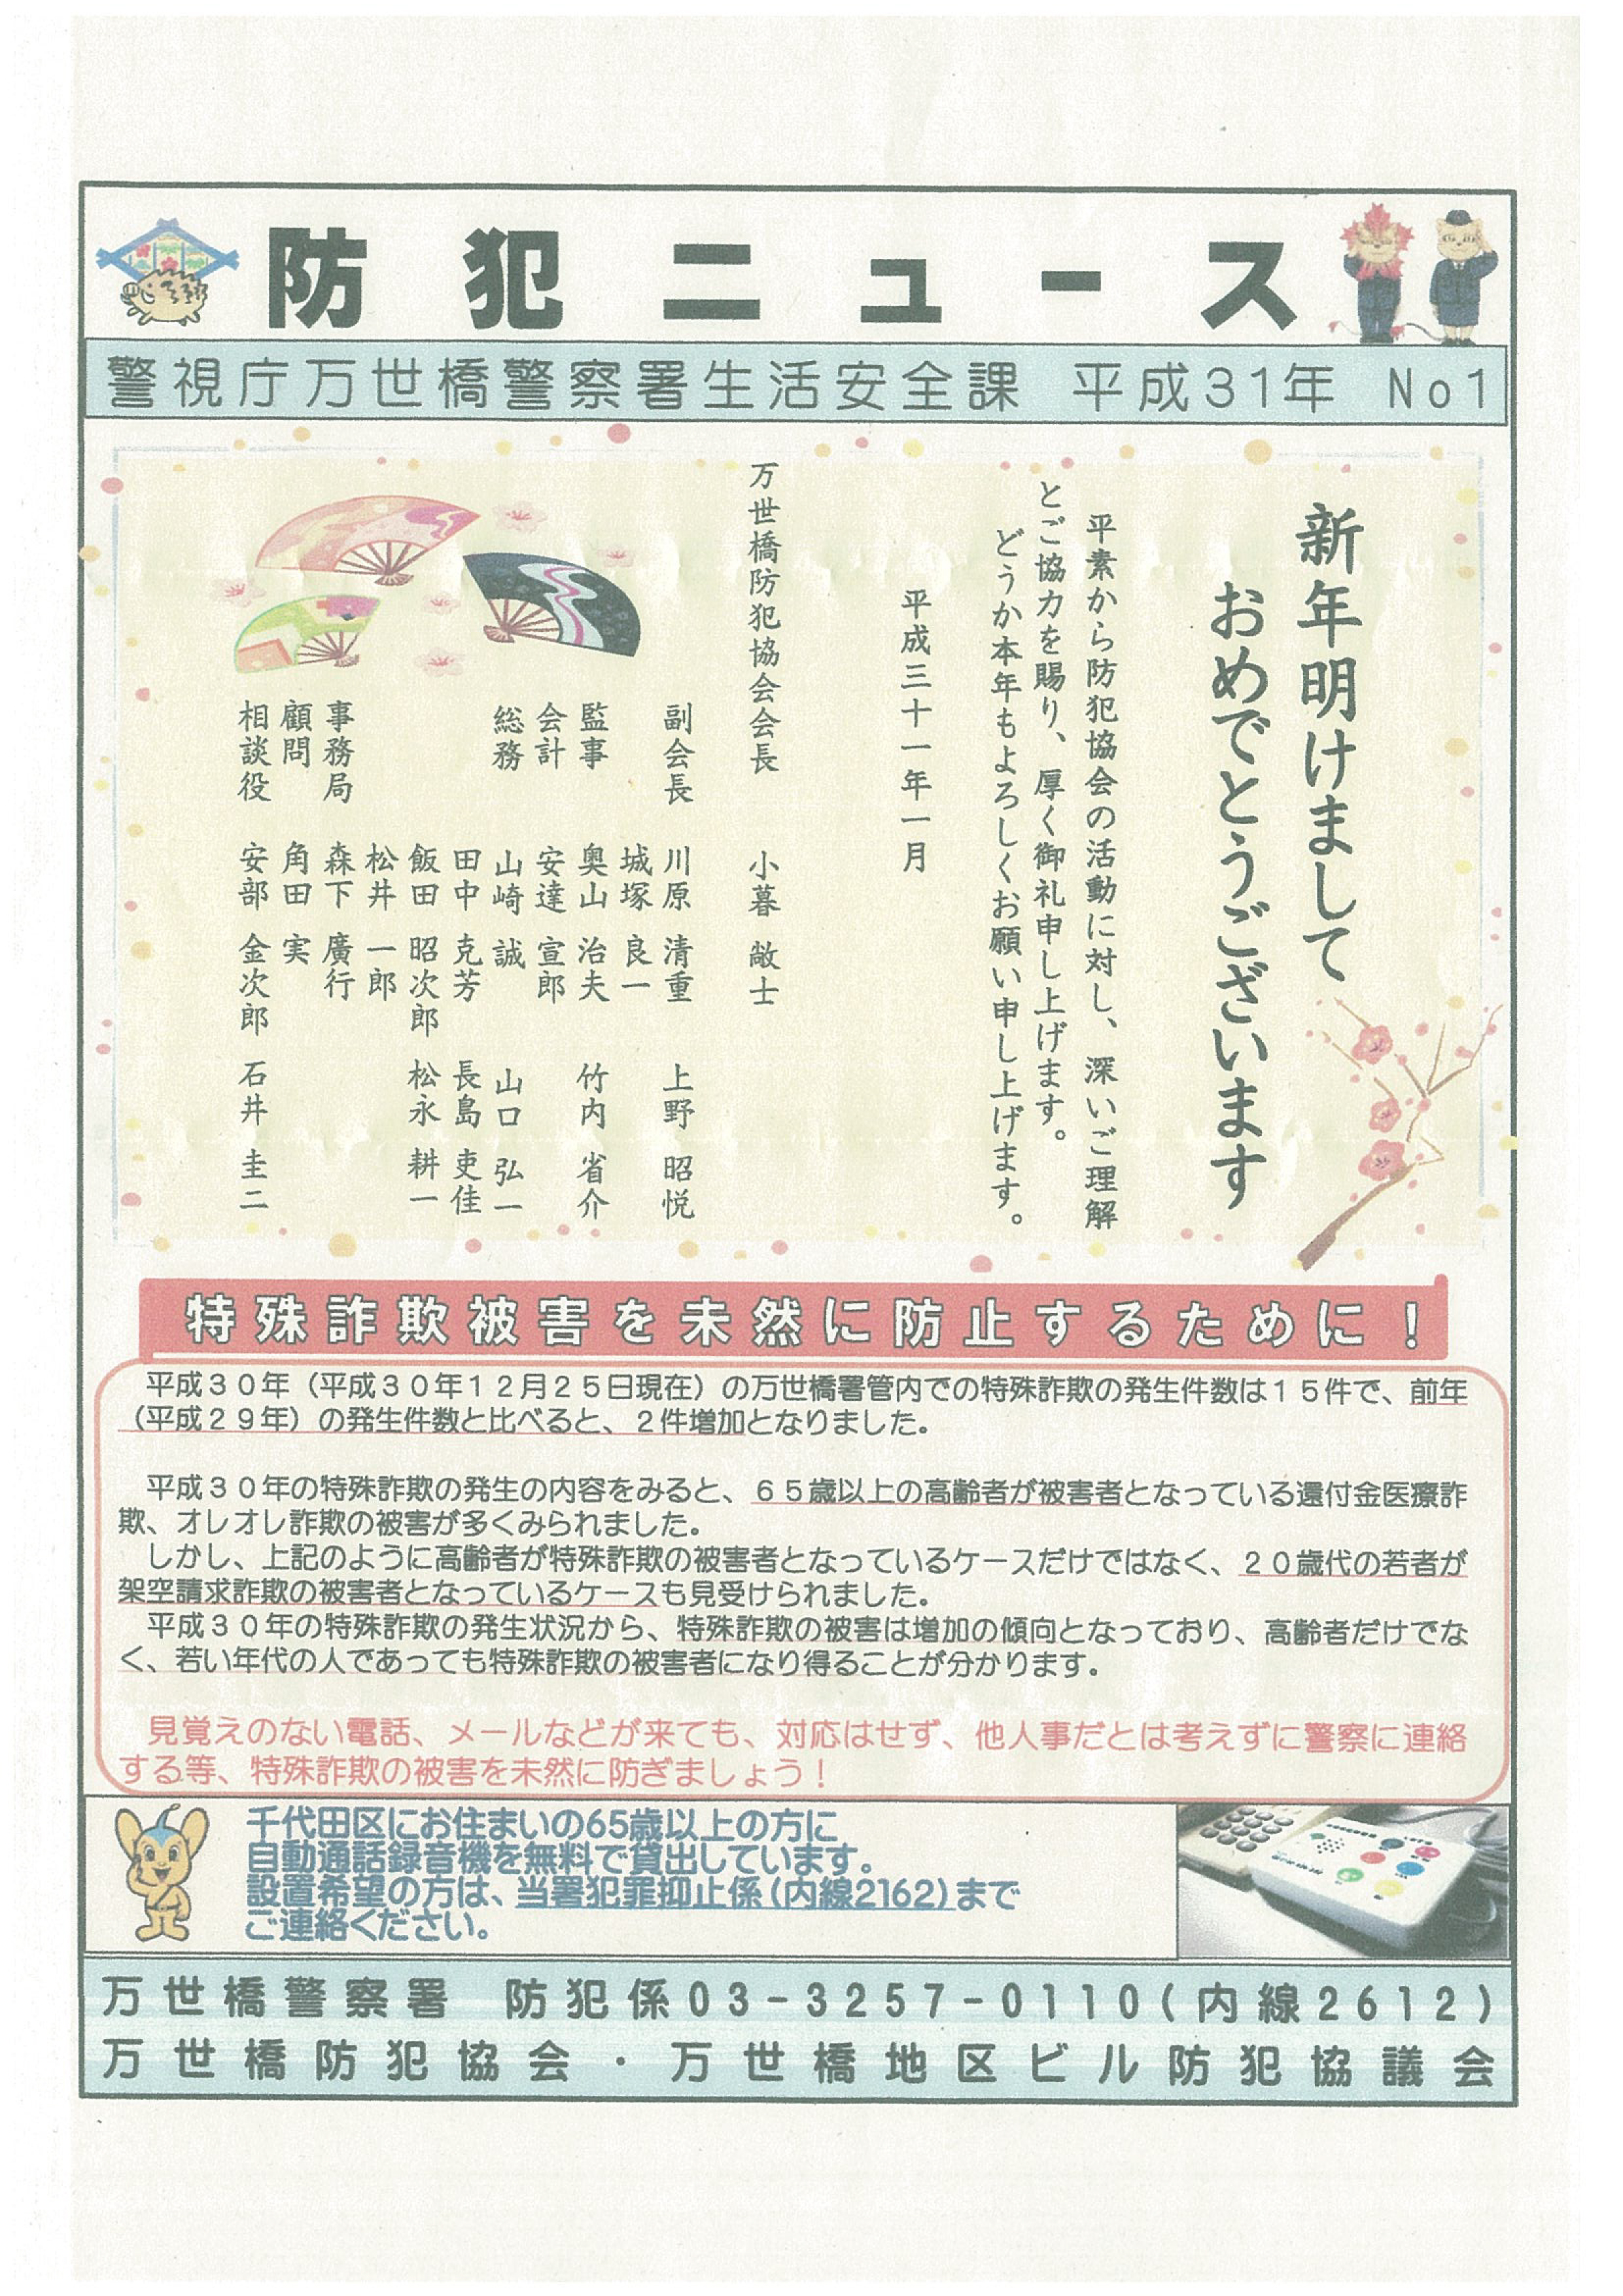 防犯ニュース
警視庁万世橋警察署生活安全課 平成31年 No1
新年明けまして
おめでとうございます
平素から防犯協会の活動に対し、深いご理解
とご協力を賜り、厚く御礼申し上げます。
どうか本年もよろしくお願い申し上げます。
平成三十一年一月
万世橋防犯協会会長 小暮 敞士
副会長 川原 清重 上野 昭悦
城塚 良一
監事 奥山 治夫 竹内 省介
会計 安達 宣郎
総務 山崎 誠 山口 弘一
田中 克芳 長島 吏佳
飯田 昭次郎 松永 耕一
松井 一郎
事務局 森下 廣行
顧問 角田 実
相談役 安部 金次郎 石井 圭二
特殊詐欺被害を未然に防止するために！
平成３０年（平成３０年１２月２５日現在）の万世橋署管内での特殊詐欺の発生件数は１５件で、前年
（平成２９年）の発生件数と比べると、２件増加となりました。
平成３０年の特殊詐欺の発生の内容をみると、６５歳以上の高齢者が被害者となっている還付金医療詐
欺、オレオレ詐欺の被害が多くみられました。
しかし、上記のように高齢者が特殊詐欺の被害者となっているケースだけではなく、２０歳代の若者が
架空請求詐欺の被害者となっているケースも見受けられました。
平成３０年の特殊詐欺の発生状況から、特殊詐欺の被害は増加の傾向となっており、高齢者だけでな
く、若い年代の人であっても特殊詐欺の被害者になり得ることが分かります。
見覚えのない電話、メールなどが来ても、対応はせず、他人事だとは考えずに警察に連絡
する等、特殊詐欺の被害を未然に防ぎましょう！
千代田区にお住まいの65歳以上の方に
自動通話録音機を無料で貸出しています。
設置希望の方は、当署犯罪抑止係（内線2162）まで
ご連絡ください。
万世橋警察署 防犯係03-3257-0110(内線2612)
万世橋防犯協会・万世橋地区ビル防犯協議会